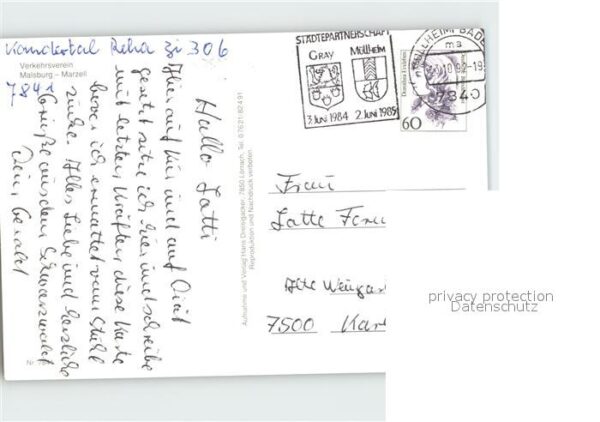 Kandertal Reha Zi 306
Verkehrsverein
Malsburg – Marzell
7841
Hallo Lotti
Hier auf Kur und auf Diät
gesetzt sitze ich hier und schreibe
mit letzten Kräften diese Karte
bevor ich ermattet vom Stuhl
sinke. Alles Liebe und herzliche
Grüße aus dem Schwarzwald
Dein Gerald
Nr.
Aufnahme und Verlag Hans Dreisigacker, 7850 Lörrach, Tel. 07621-82491
Reproduktion und Nachdruck verboten
STÄDTEPARTNERSCHAFT
GRAY MÜLLHEIM
3.Juni 1984 2.Juni 1985
MÜLLHEIM, BADEN
ma
10.92-19
7840
60
Frau
Lotte
Alte
7500
privacy protection
Datenschutz